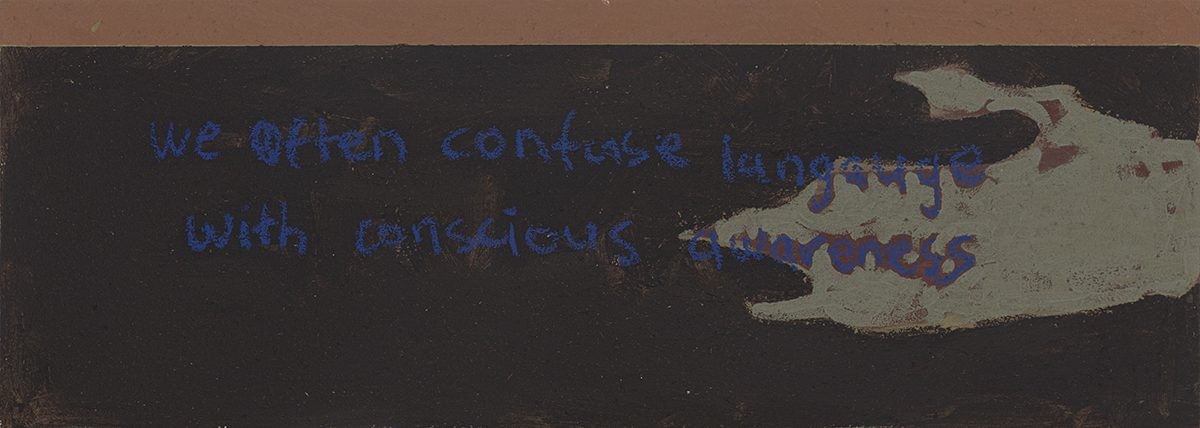 we often confuse langauge
with conscious awareness